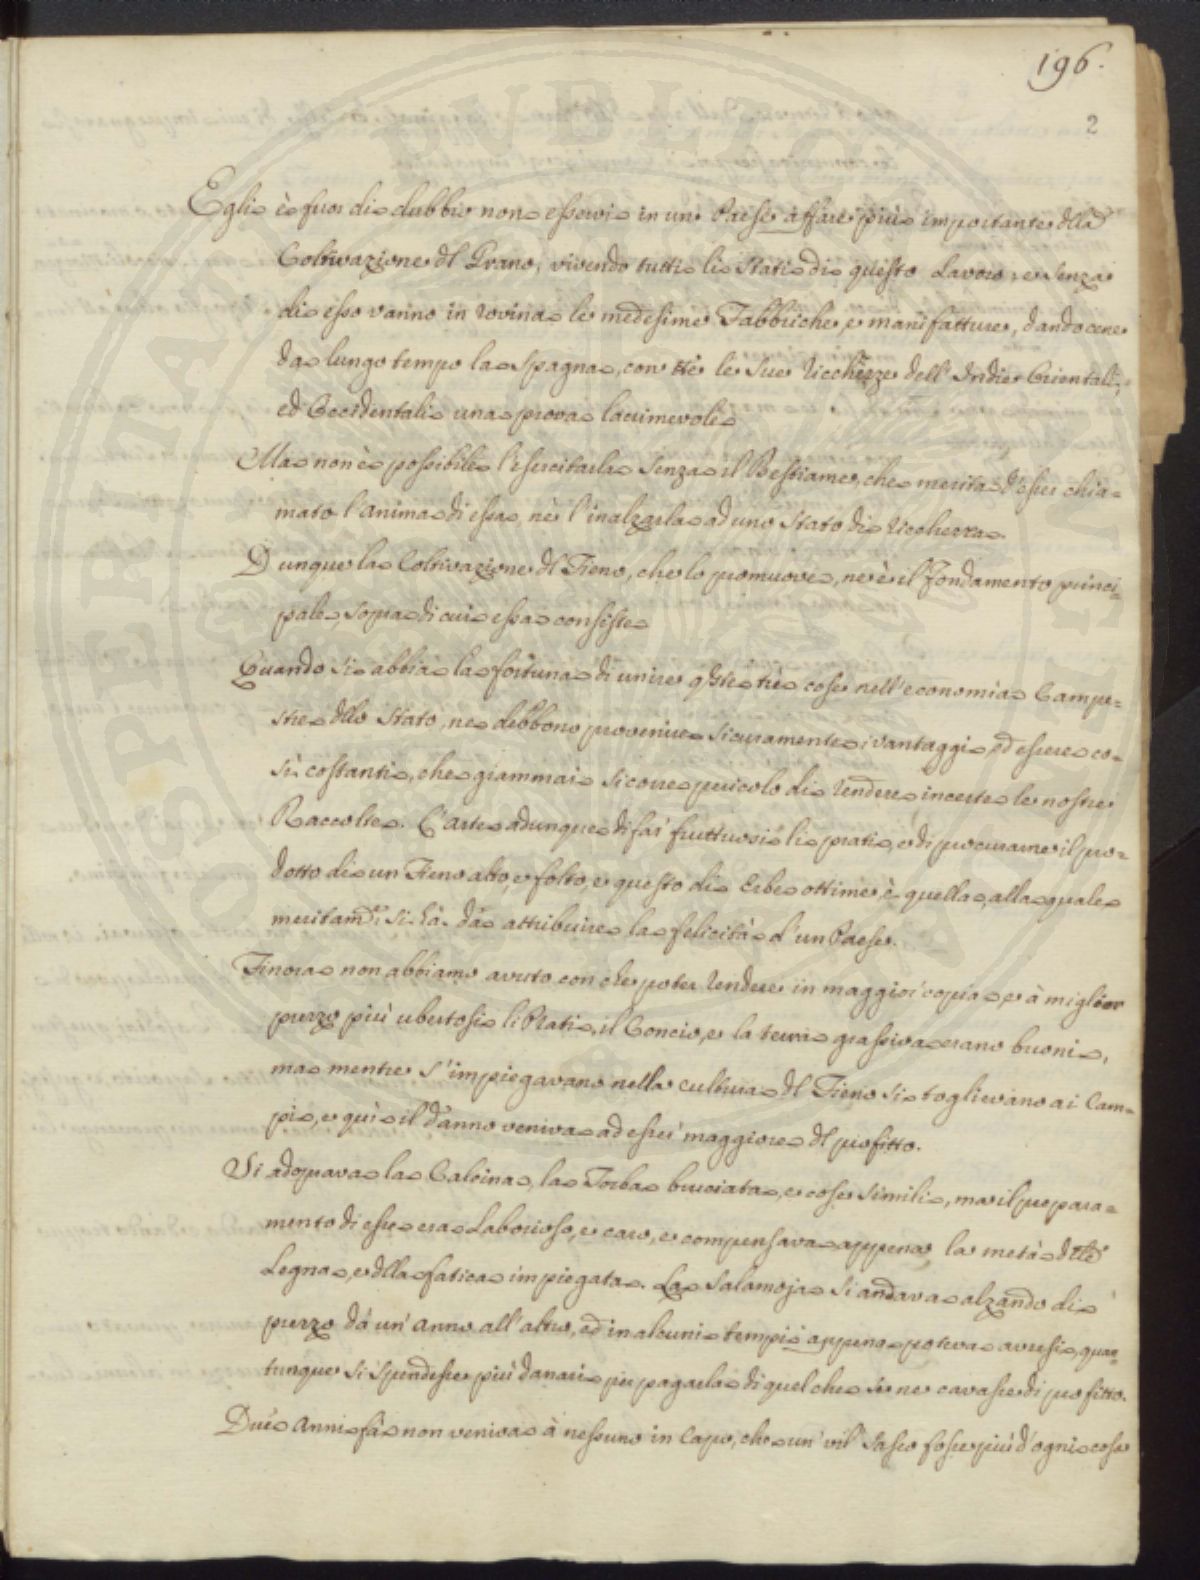 196.
2
Egli è fuor di dubbio non esservi in un Paese affare più importante dlla
Coltivazione dl Grano, vivendo tutti li Stati di questo Lavoro, e senza
di esso vanno in rovina le medesime Fabbriche, e manifatture, dandocene
da lungo tempo la Spagna, con tte le sue Ricchezze dell' Indie Orientali,
ed Occidentali una prova lacrimevole
Ma non è possibile l'esercitarla senza il Bestiame, che merita d'esser chia=
mato l'anima di essa, nè l'inalzarla ad uno Stato di Ricchezza.
Dunque la Coltivazione dl Fieno, che lo promuove, ne è il Fondamento princi=
pale, sopra di cui essa consiste
Quando si abbia la fortuna di unire qste trè cose nell'economia Campe=
stre dllo Stato, ne debbono provenire sicuramente i vantaggi, ed essere co=
sì costanti, che giammai si corre pericolo di rendere incerte le nostre
Raccolte. L'Arte adunque di far fruttuosi li prati, e di procurarne il pro=
dotto di un Fieno alto, e folto, e questo di Erbe ottime, è quella, alla quale
meritamte si hà dà attribuire la felicità d'un Paese.
Finora non abbiamo avuto con che poter rendere in maggior copia, e à miglior
prezzo più ubertosi li Prati, il Concio, e la terra grassiva erano buoni,
ma mentre s'impiegavano nella cultura dl Fieno si toglievano ai Cam=
pi, e quì il danno veniva ad esser maggiore dl profitto.
Si adoprava la Calcina, la Torba bruciata, e cose simili, ma il prepara=
mento di esse era Laborioso, e caro, e compensava appena la metà dlle
Legna, e dlla fatica impiegata. La Salamoja si andava alzando di
prezzo dà un' anno all' altro, ed in alcuni tempi appena poteva aversi, quan=
tunque si spendesse più danari per pagarla di quel che se ne cavasse di profitto.
Due Anni fà non veniva à nessuno in Capo, che un' vil' Sasso fosse più d'ogni cosa